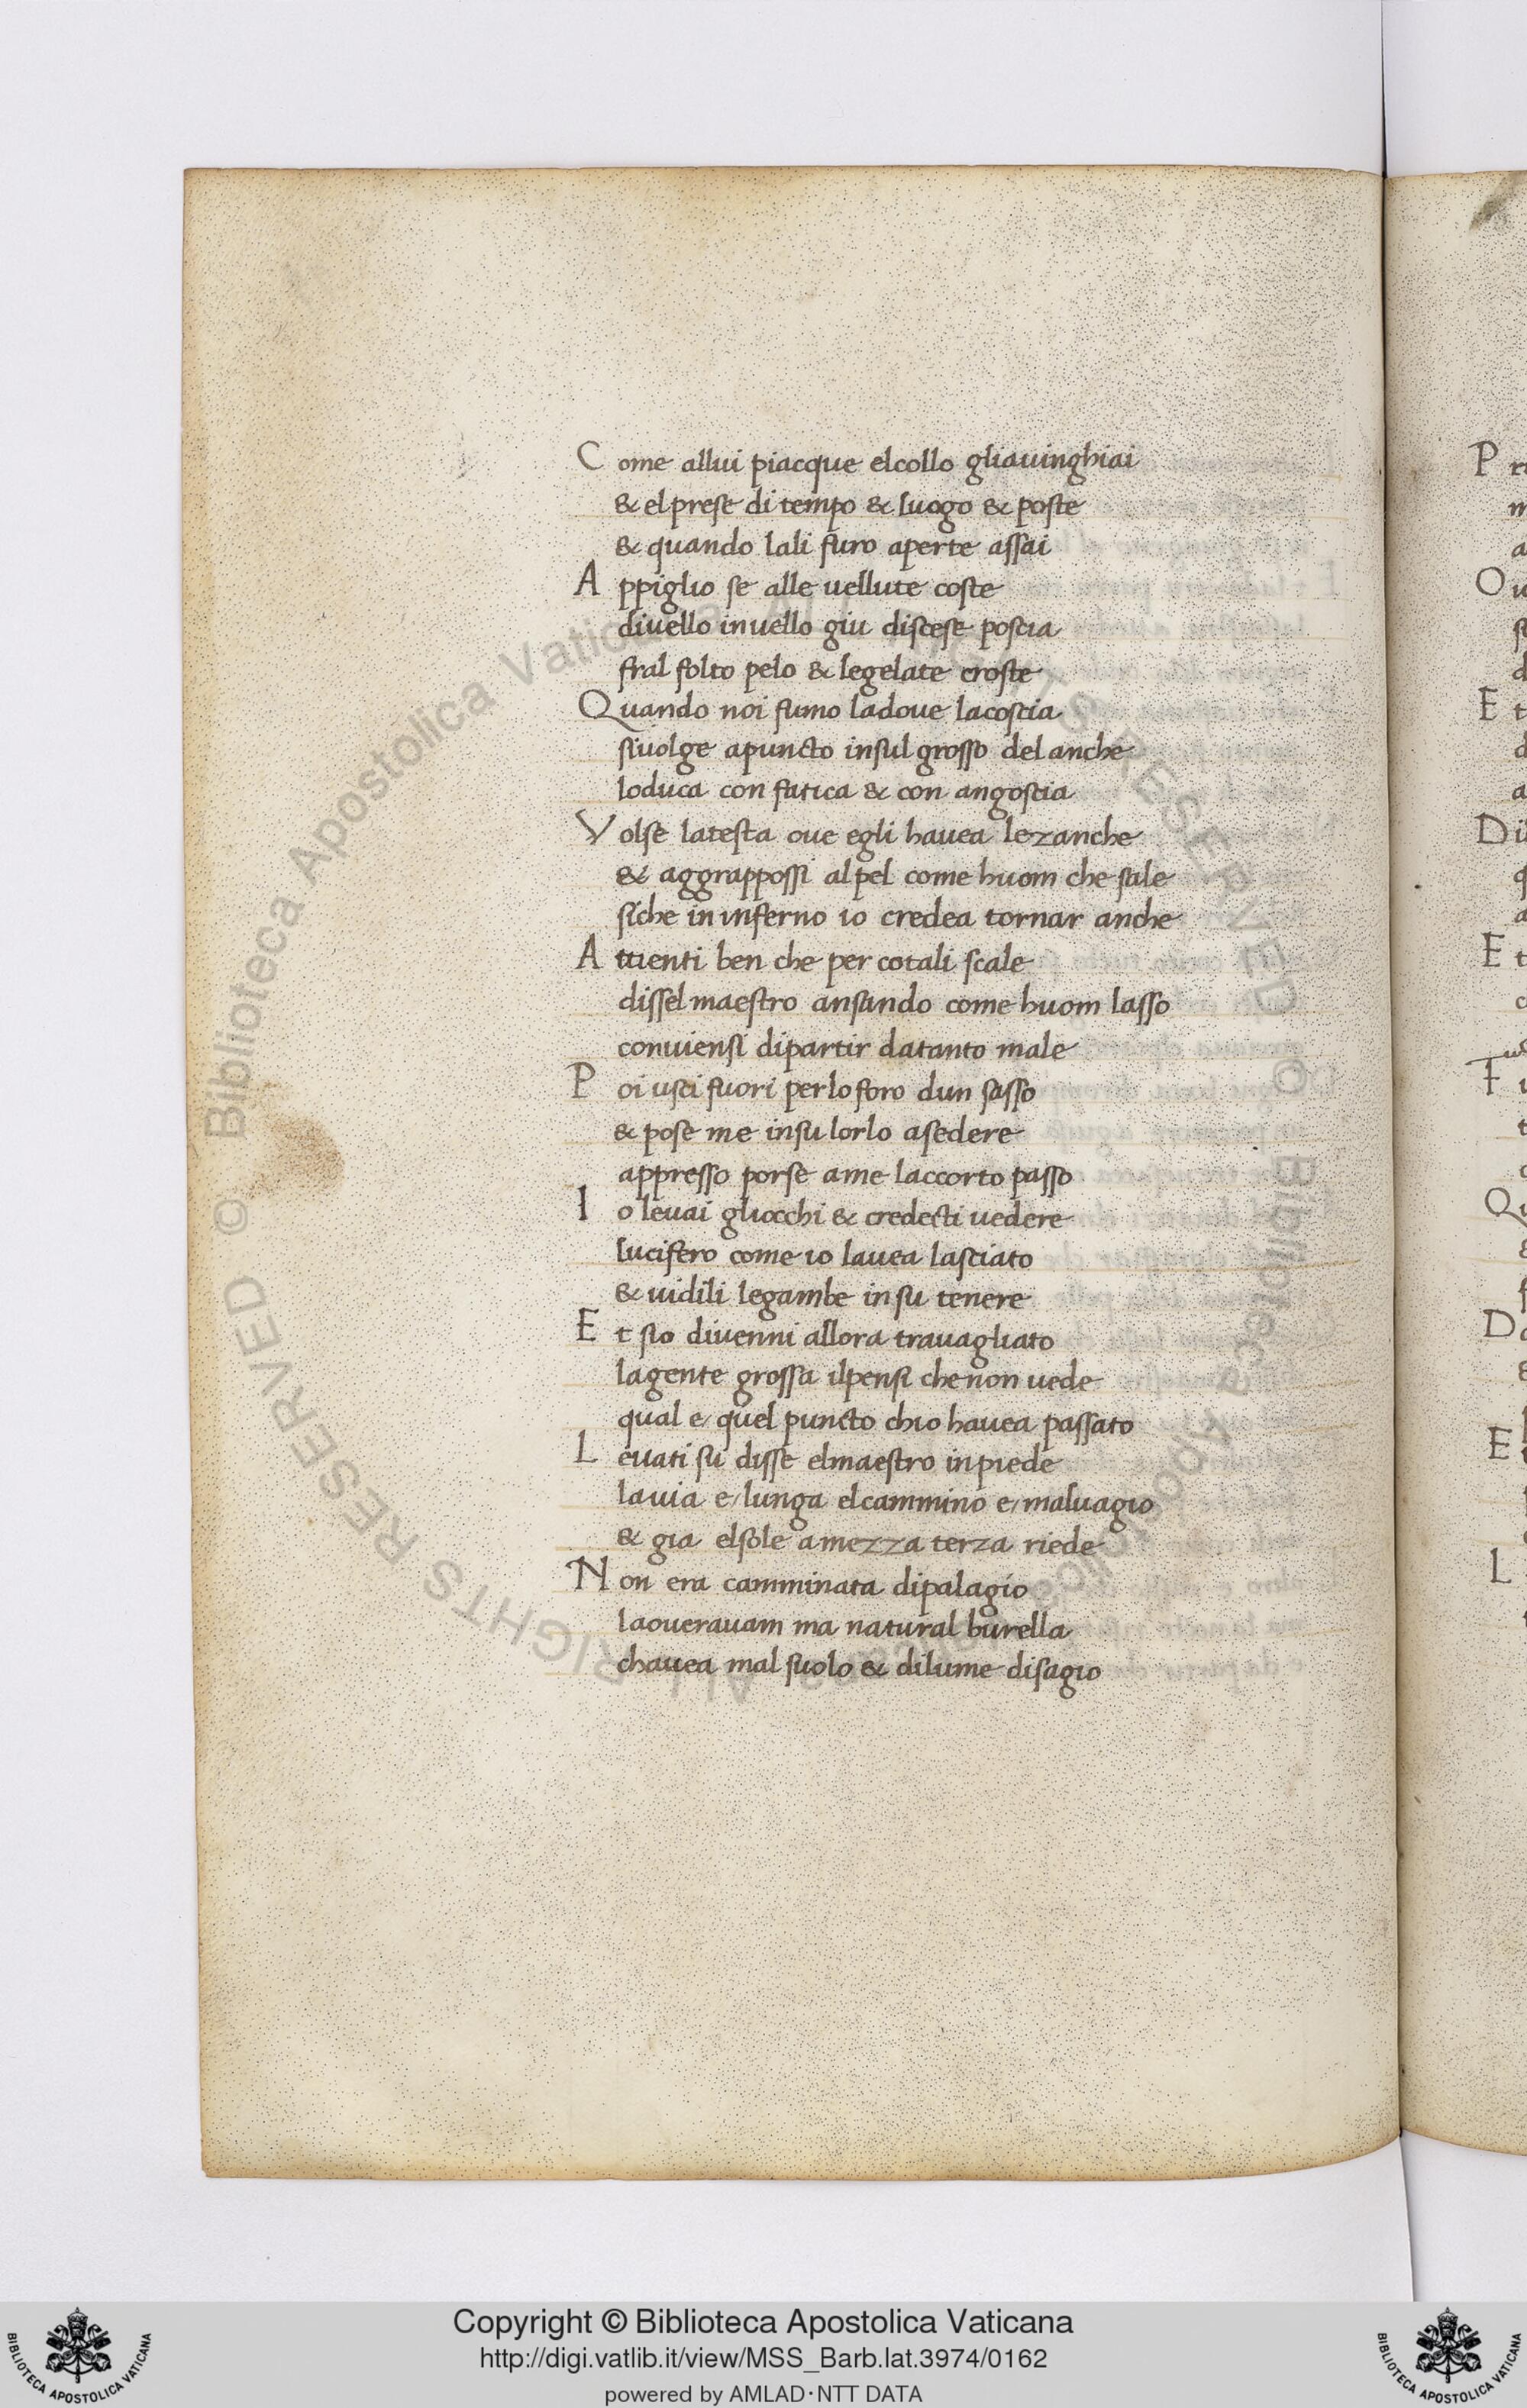 Come allui piacque elcollo gliauinghiai
& el prese di tempo & luogo & poste
& quando lali furo aperte assai
Appiglio se alle uellute coste
diuello inuello giu discese poscia
fral folto pelo & legelate croste
Quando noi fumo ladoue lacoscia
siuolge apuncto insul grosso del anche
loduca con fatica & con angoscia
Volse latesta oue egli hauea lezanche
& aggrappossi alpel come huom che sale
siche in inferno io credea tornar anche
Attienti ben che per cotali scale
dissel maestro ansando come huom lasso
conuiensi dipartir datanto male
Poi usci fuori perlo foro dun sasso
& pose me insu lorlo asedere
appresso porse ame laccorto passo
Io leuai gliocchi & credecti uedere
lucifero come io lauea lasciato
& uidili legambe insu tenere
Et sio diuenni allora trauagliato
lagente grossa ilpensi che non uede
qual e/ quel puncto chio hauea passato
Leuati su disse elmaestro inpiede
lauia e/ lunga elcammino e/ maluagio
& gia elsole amezza terza riede
Non era camminata dipalagio
laouerauam ma natural burella
chauea mal suolo & dilume disagio
P
O
E t
D
E t
Q
D
E
L
© Biblioteca Apostolica Vaticana ALL RIGHTS RESERVED © Biblioteca Apostolica Vaticana ALL RIGHTS RESERVED
Copyright © Biblioteca Apostolica Vaticana
http://digi.vatlib.it/view/MSS_Barb.lat.3974/0162
powered by AMLAD·NTT DATA
BIBLIOTECA APOSTOLICA VATICANA
BIBLIOTECA APOSTOLICA VATICANA